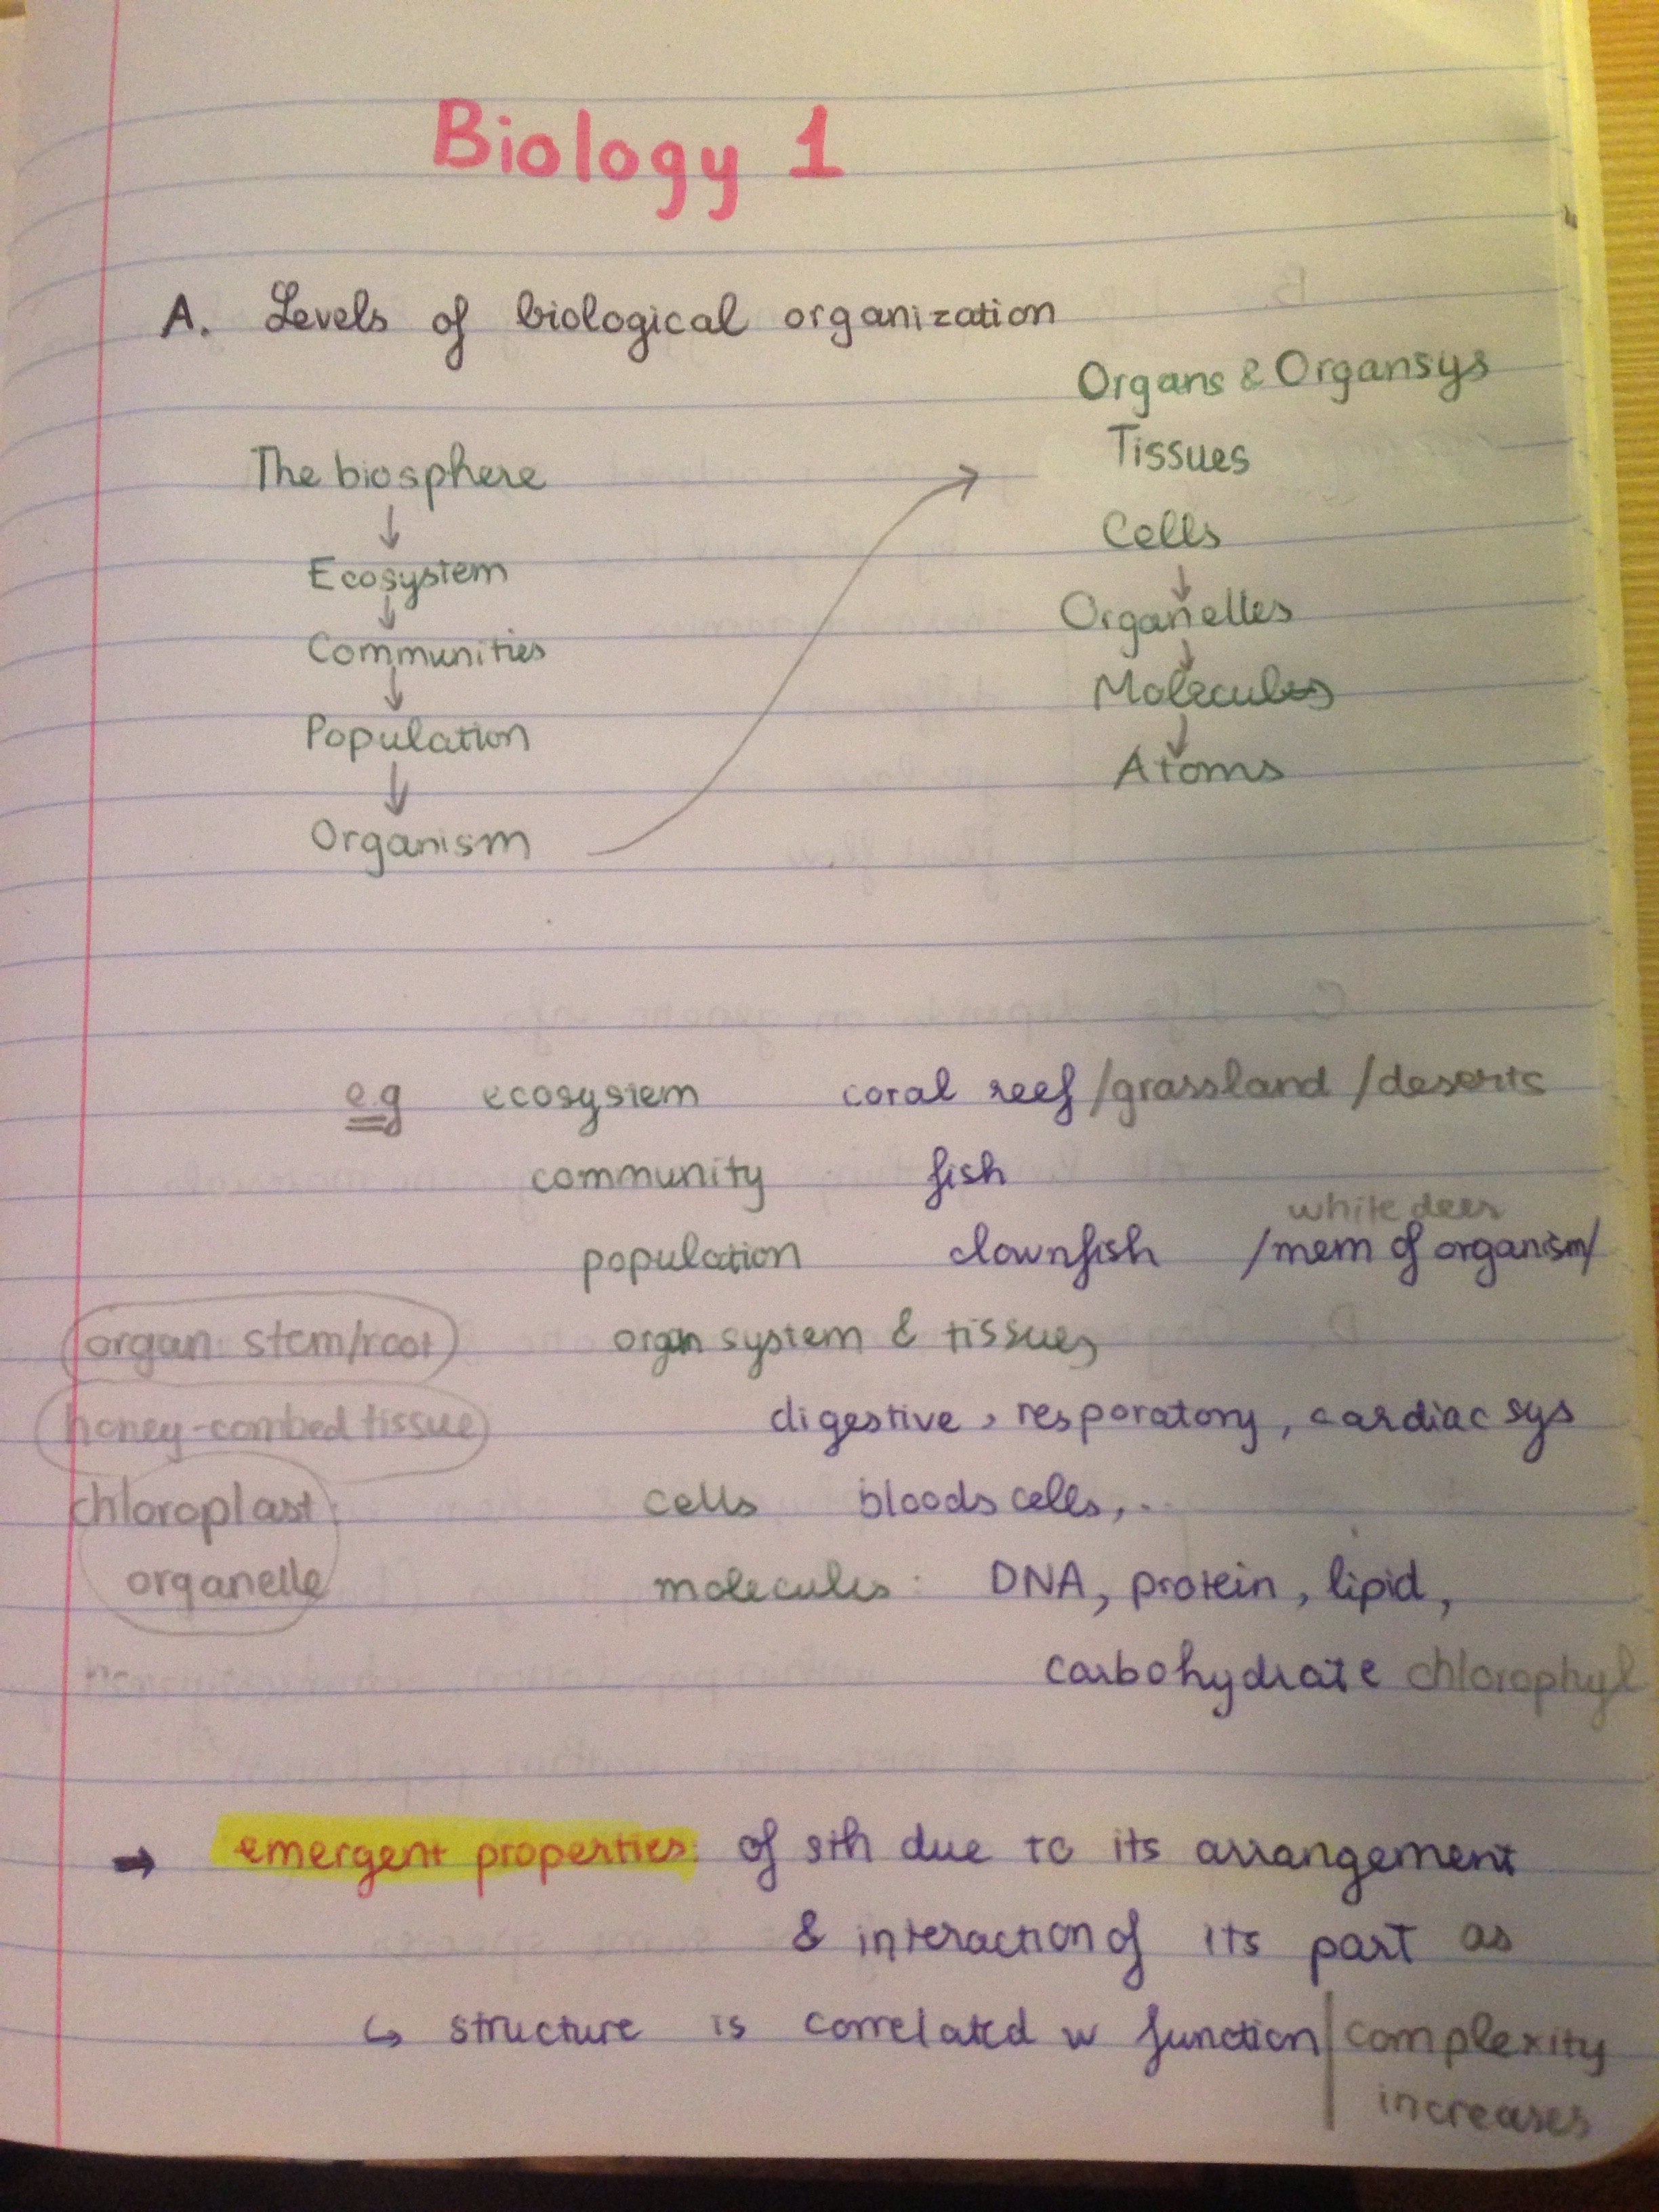 Biology 1
A. Levels of biological organization
The biosphere
↓
Ecosystem
↓
Communities
↓
Population
↓
Organism →
Organs & Organsys
Tissues
Cells
↓
Organelles
↓
Molecules
↓
Atoms
e.g ecosystem coral reef /grassland /deserts
community fish
white deer
population clownfish /mem of organism/
organ: stem/root organ system & tissues
honey-combed tissue digestive, resporatory, cardiac sys
chloroplast: cells bloods cells,..
organelle molecules: DNA, protein, lipid,
carbohydrate chlorophyl
→ emergent properties: of sth due to its arrangement
& interaction of its part as
↳ structure is correlated w function | complexity
increases